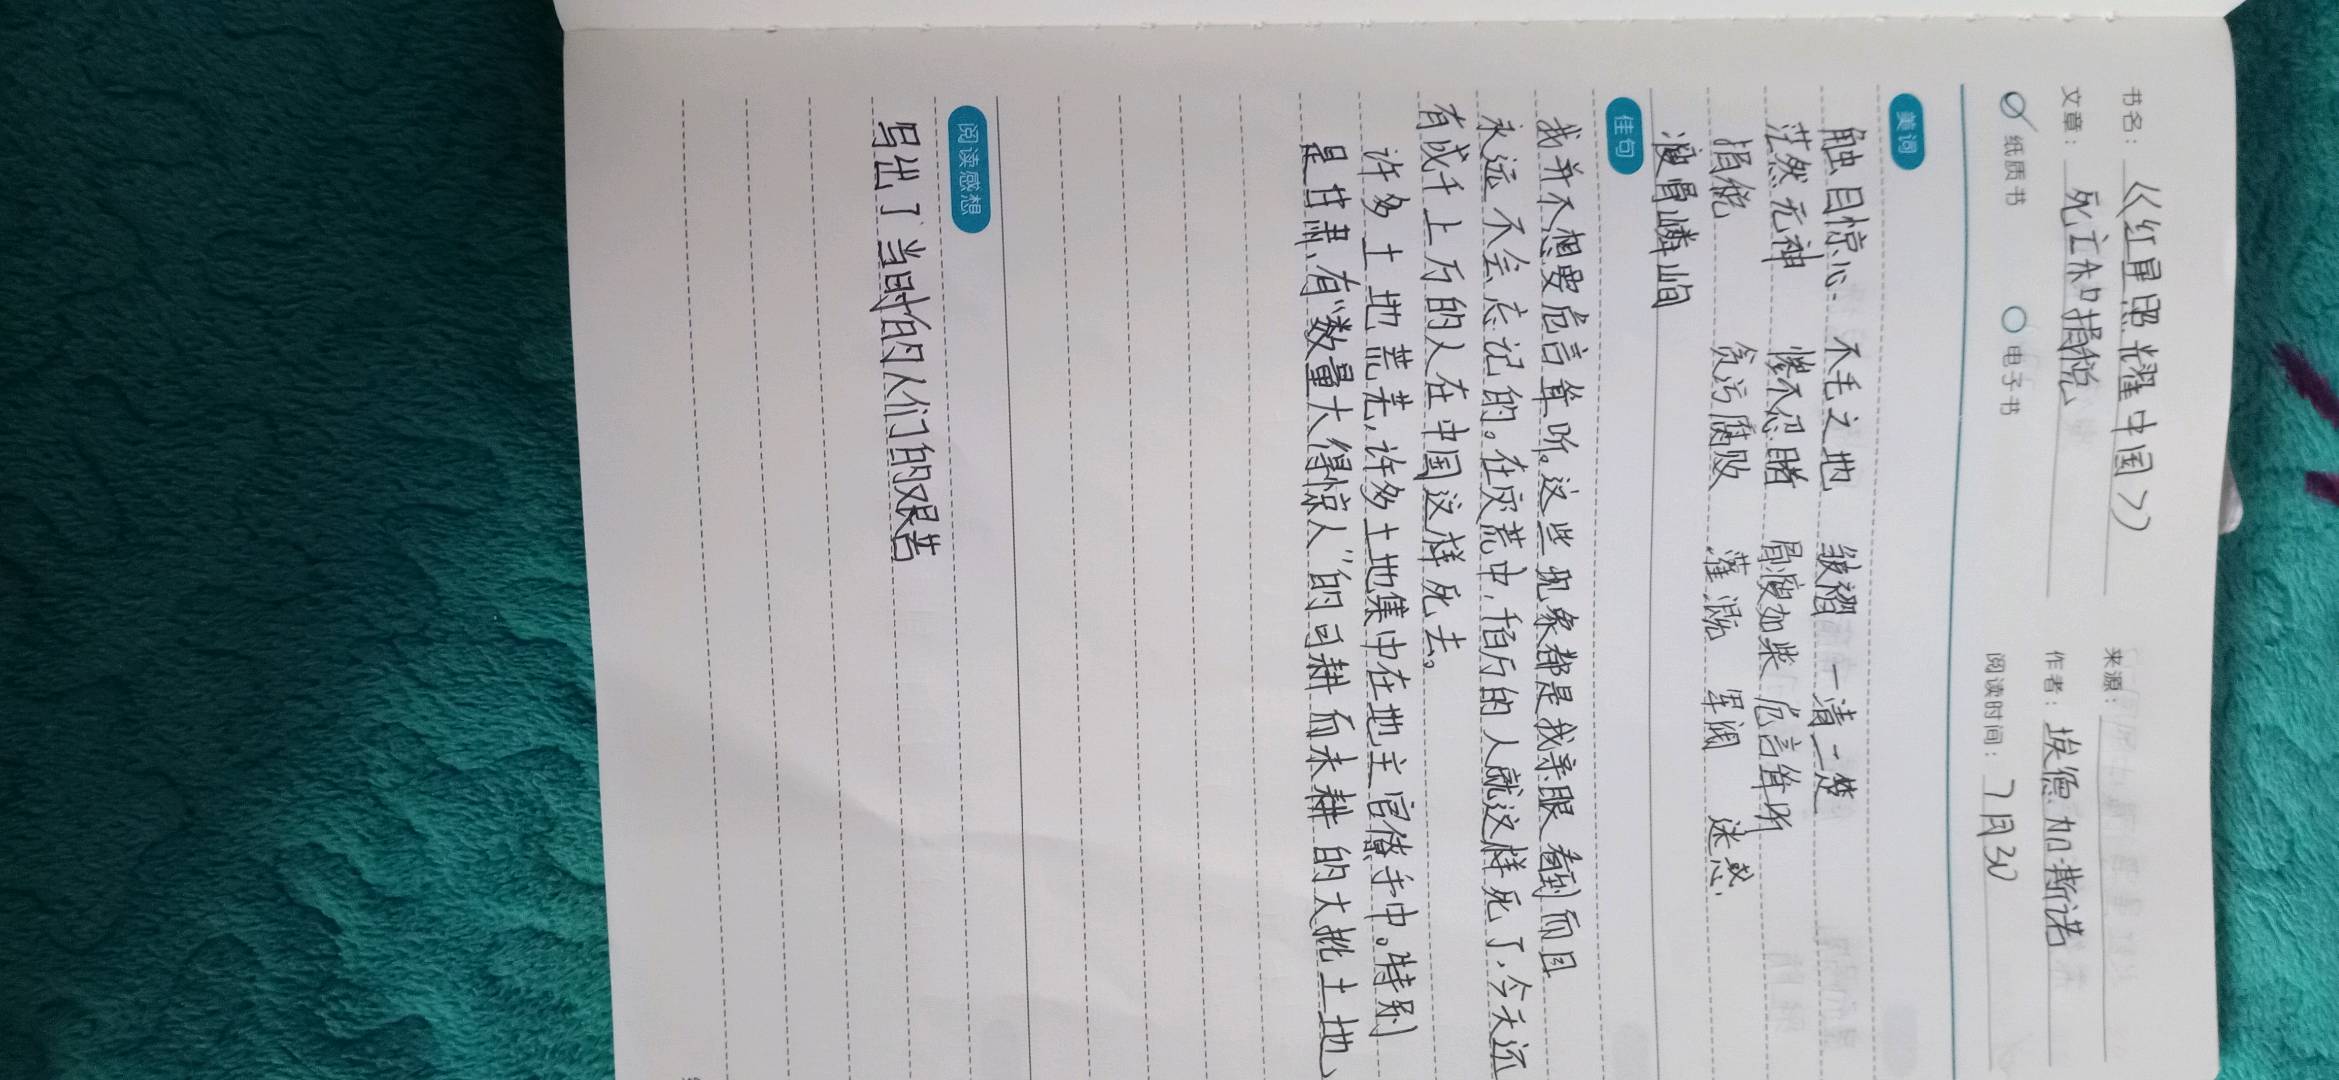 书名：《红星照耀中国》 来源：
文章：死亡和捐税 作者：埃德加斯诺
纸质书 电子书 阅读时间：7月30
美词
触目惊心 不毛之地 皱褶 一清二楚
茫然无神 惨不忍睹 骨瘦如柴 危言耸听
捐税 贪污腐败 灌溉 军阀 迷惑
瘦骨嶙峋
佳句
我并不想要危言耸听。这些现象都是我亲眼看到而且
永远不会忘记的。在灾荒中，千百万的人就这样死了，今天还
有成千上万的人在中国这样死去。
许多土地荒芜，许多土地集中在地主官僚手中。特别
是甘肃，有“数量大得惊人”的可耕而未耕的大批土地
阅读感想
写出了当时的人们的艰苦